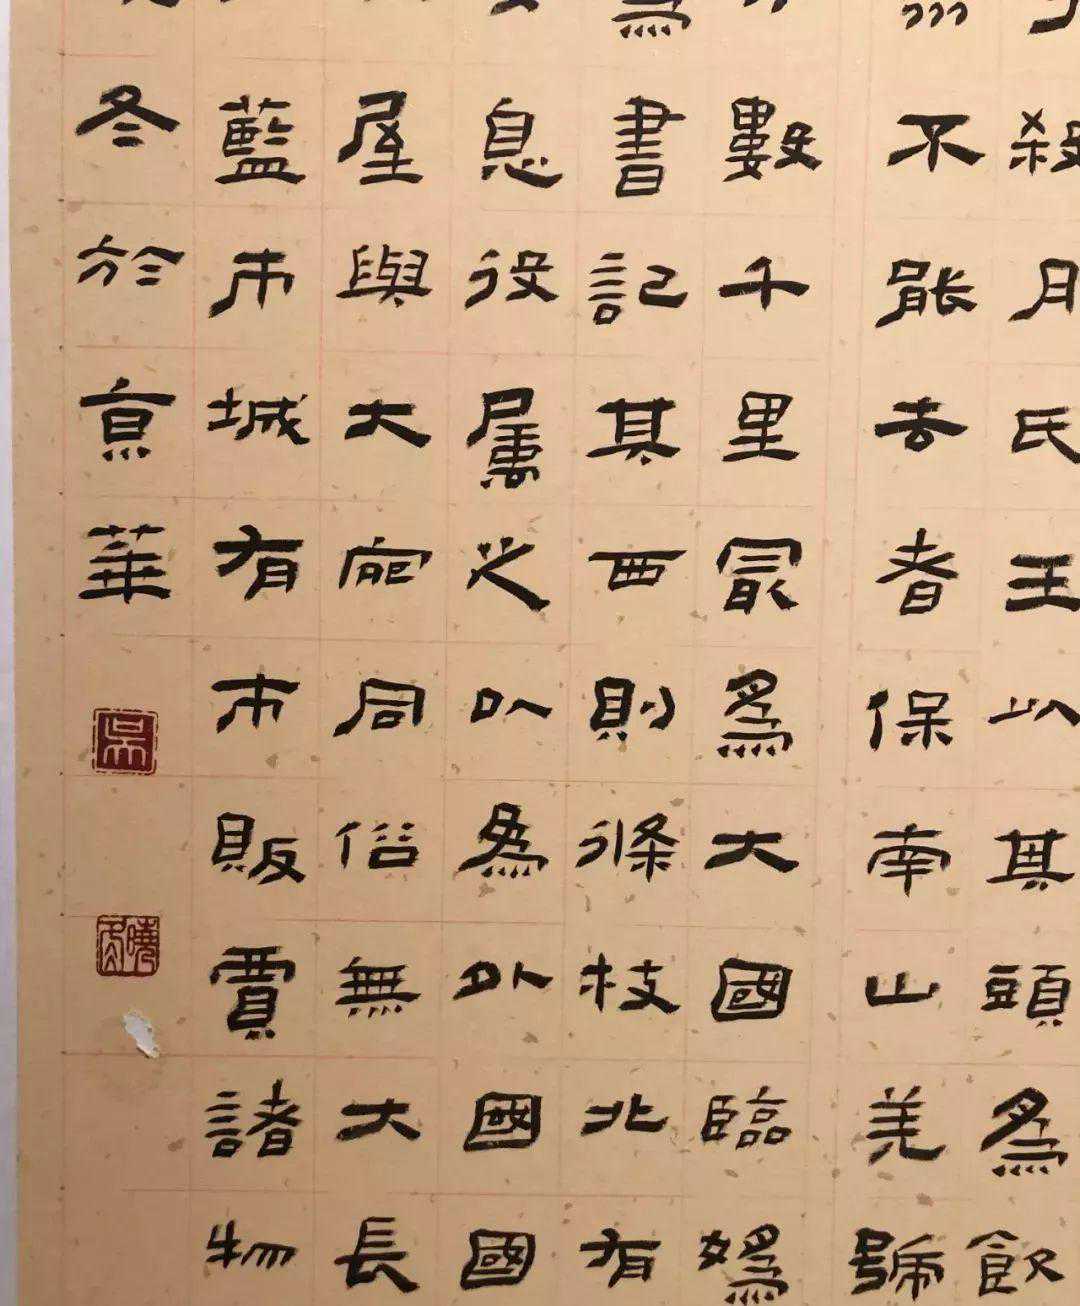 殺月氏王以其頭為飲
不能去者保南山羌號
數千里最為大國臨媯
為書記其西則條枝北有
息役屬之以為外國國
屋與大宛同俗無大長
藍市城有市販賈諸物
冬於京華
吳